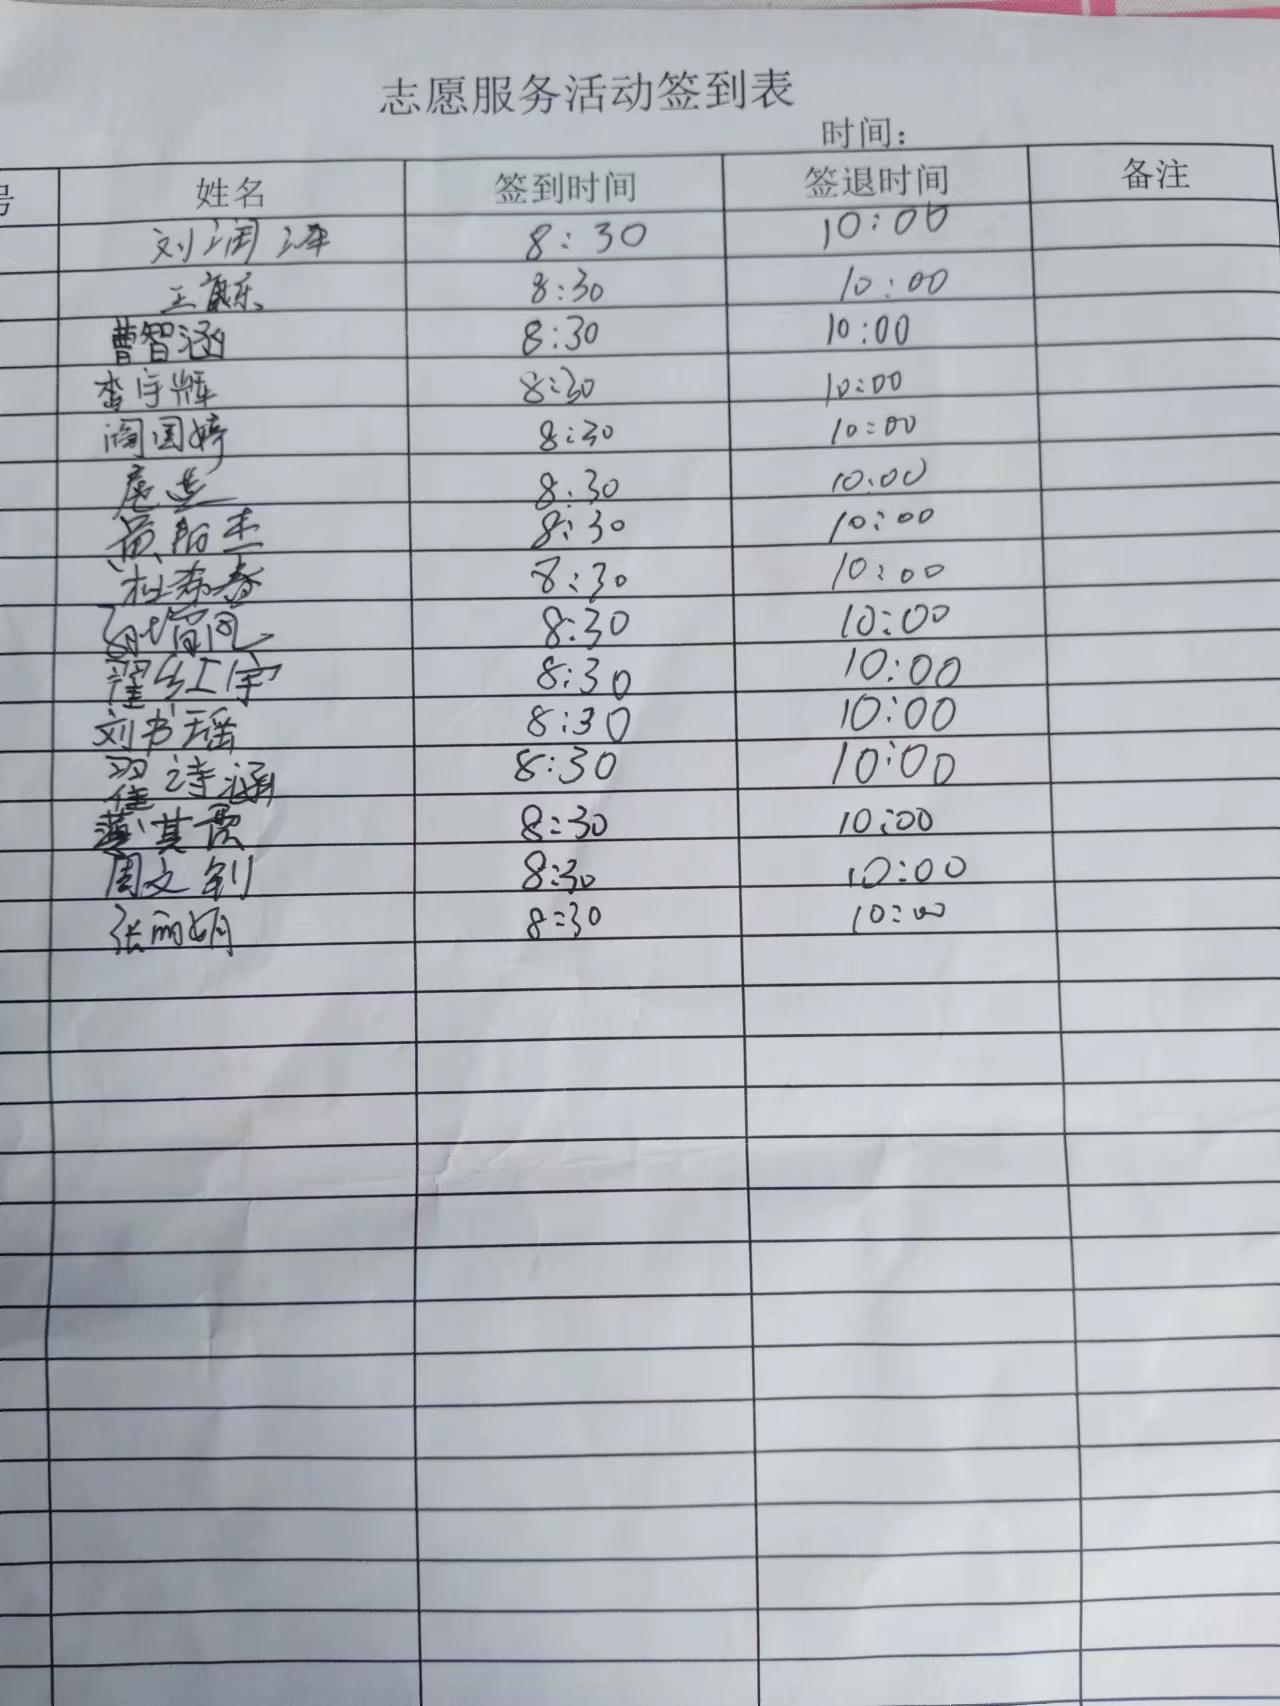 志愿服务活动签到表
时间：
号 姓名 签到时间 签退时间 备注
刘润泽 8:30 10:00
王 8:30 10:00
曹智涵 8:30 10:00
李宇辉 8:30 10:00
阎国婷 8:30 10:00
8:30 10:00
黄 杰 8:30 10:00
杜希春 8:30 10:00
8:30 10:00
翟红宇 8:30 10:00
刘书瑶 8:30 10:00
翟诗涵 8:30 10:00
其贾 8:30 10:00
周文钊 8:30 10:00
张丽娟 8:30 10:00